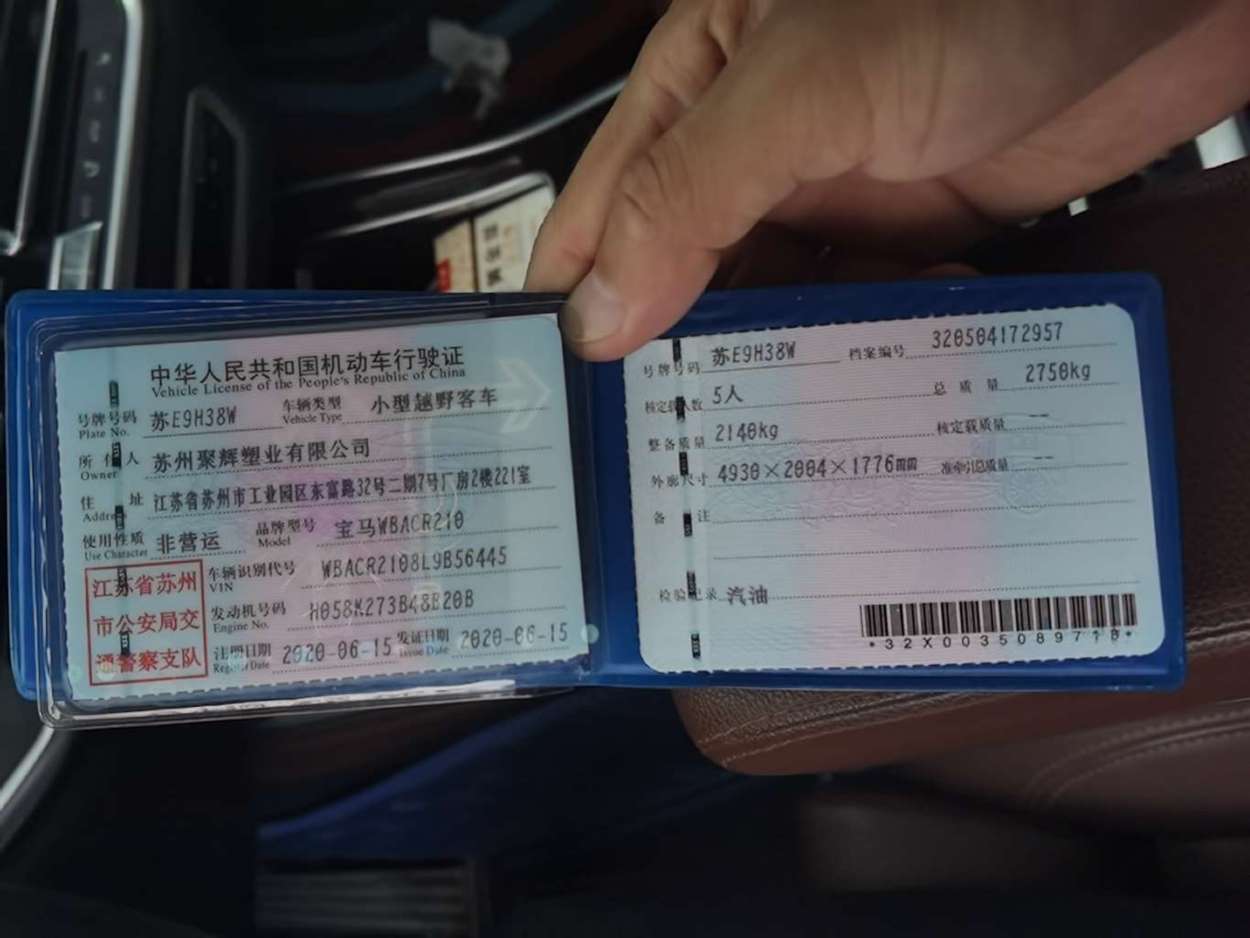 中华人民共和国机动车行驶证
Vehicle License of the People's Republic of China
号牌号码 Plate No. 苏E9H38W 车辆类型 Vehicle Type 小型越野客车
所有人 Owner 苏州聚辉塑业有限公司
住址 Address 江苏省苏州市工业园区东富路32号二期7号厂房2楼221室
使用性质 Use Character 非营运 品牌型号 Model 宝马WBACR210
江苏省苏州
市公安局交
通警察支队
车辆识别代号 VIN WBACR2108L9B56445
发动机号码 Engine No. H058K273B48B20B
注册日期 Register Date 2020-06-15 发证日期 Issue Date 2020-06-15
号牌号码 苏E9H38W 档案编号 320504172957
核定载人数 5人 总质量 2750kg
整备质量 2140kg 核定载质量 --
外廓尺寸 4930×2004×1776mm 准牵引总质量 --
备注
检验记录 汽油
*32X0035089718*